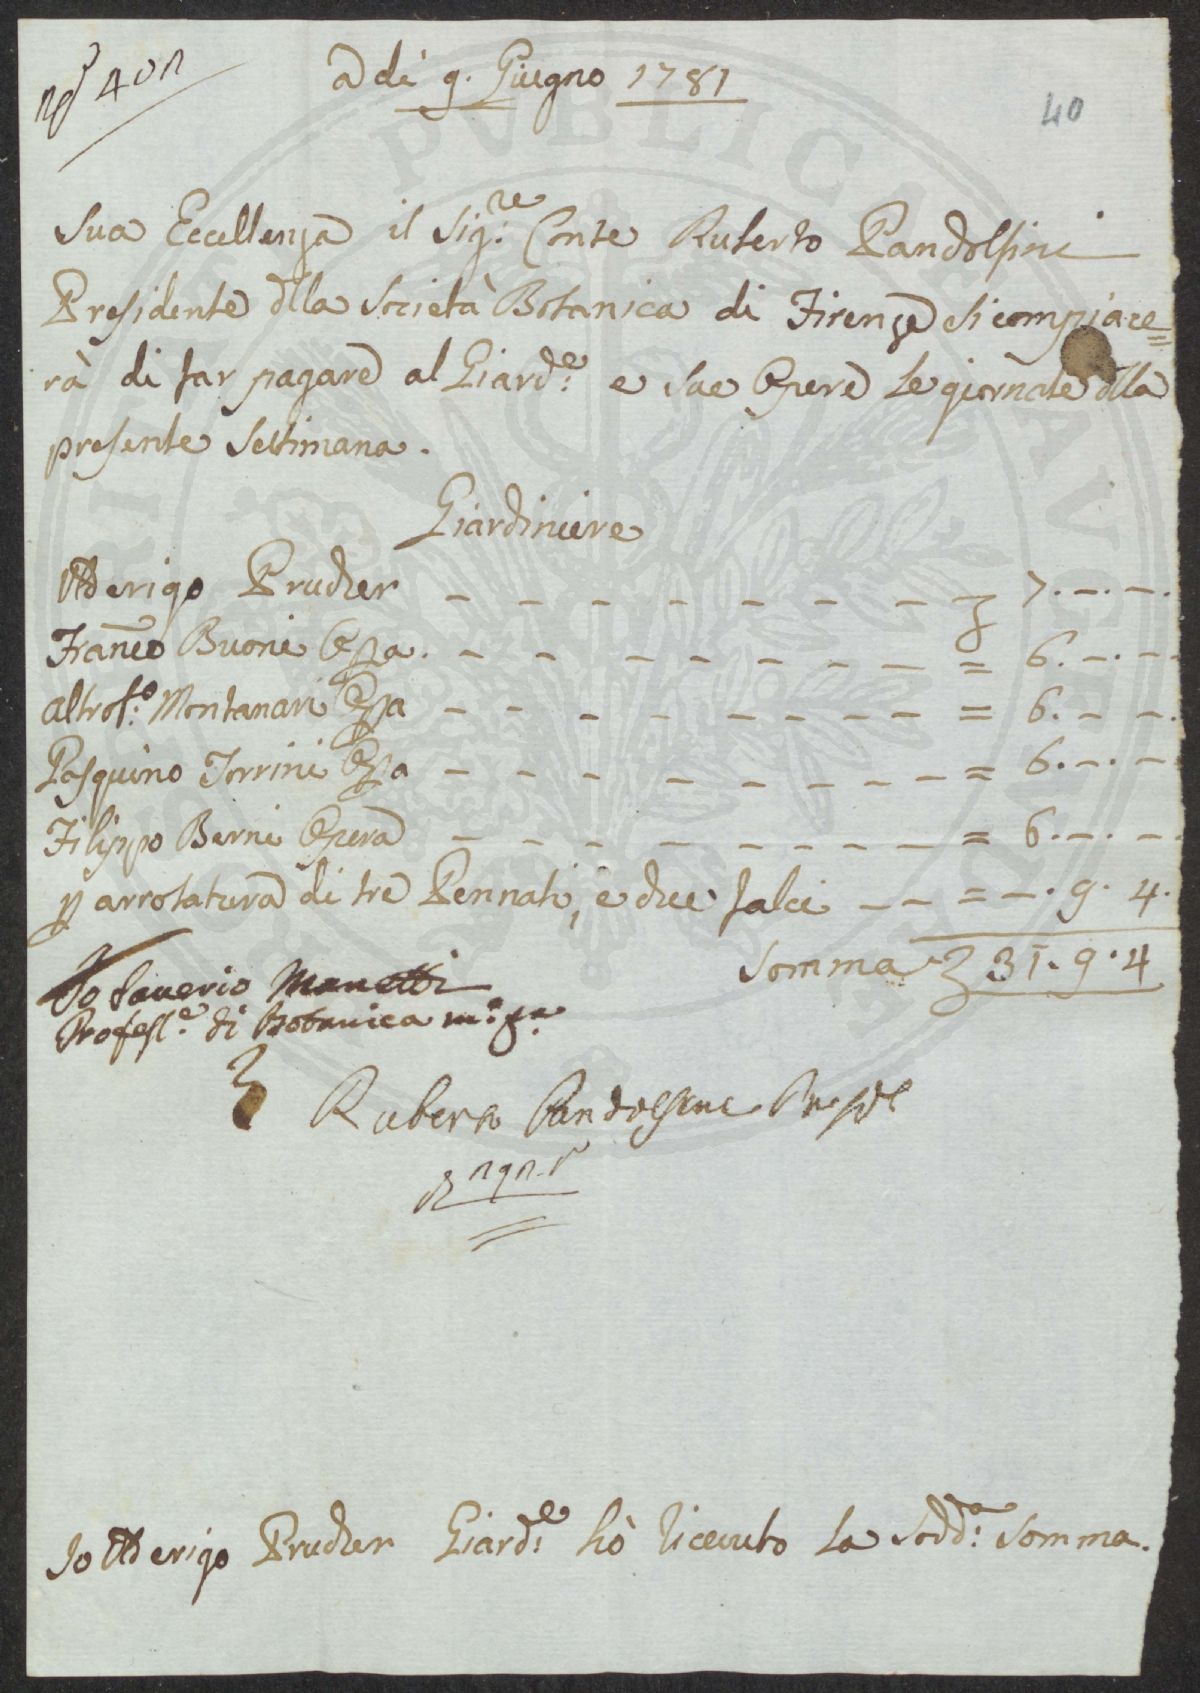 a dì 9. Giugno 1781
40
Sua Eccellenza il Sig.re Conte Ruberto Pandolfini
Presidente dlla Società Botanica di Firenze si compiace=
rà di far pagare al Giard.e e sue Opere le giornate dlla
presente Settimana.
Giardiniere
Aderigo Prucker – – – – – – – – £ 7.–.–.
Franco Buoni Opa. – – – – – – – – = 6.–.–
altro f.o Montanari Opa – – – – – – – – = 6.–.–.
Pasquino Torrini Opa – – – – – – – – = 6.–.–
Filippo Berni Opera – – – – – – – – = 6.–.–
p arrotatura di tre Pennati, e due falci – – = –.9.4.
Somma £ 31.9.4
Io Saverio Manetti
Profess.e di Botanica m.o p.a
Ruberto Pandolfini Presde
Io Aderigo Prucker Giard.e hò ricevuto la sodd.a somma.